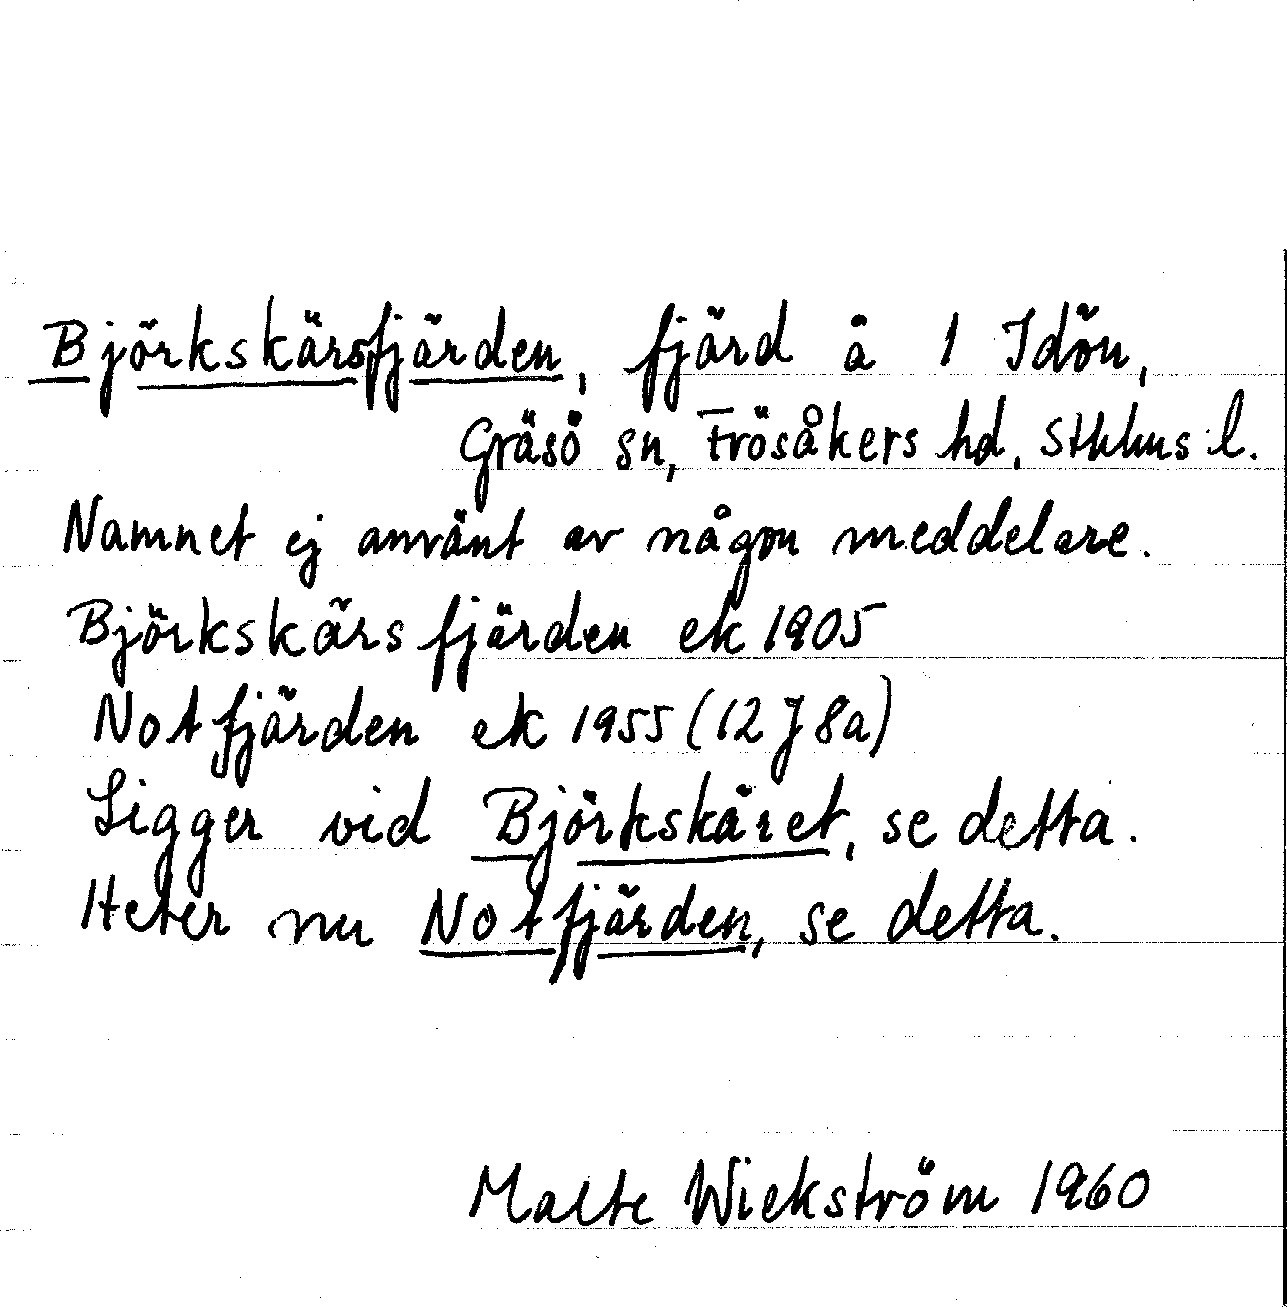 Björkskärsfjärden, fjärd å 1 Idön,
Gräsö sn, Frösåkers hd, Sthlms l.
Namnet ej använt av någon meddelare.
Björkskärsfjärden ek 1905
Notfjärden ek 1955 (12 J 8a)
Ligger vid Björkskäret, se detta.
Heter nu Notfjärden, se detta.
Malte Wickström 1960